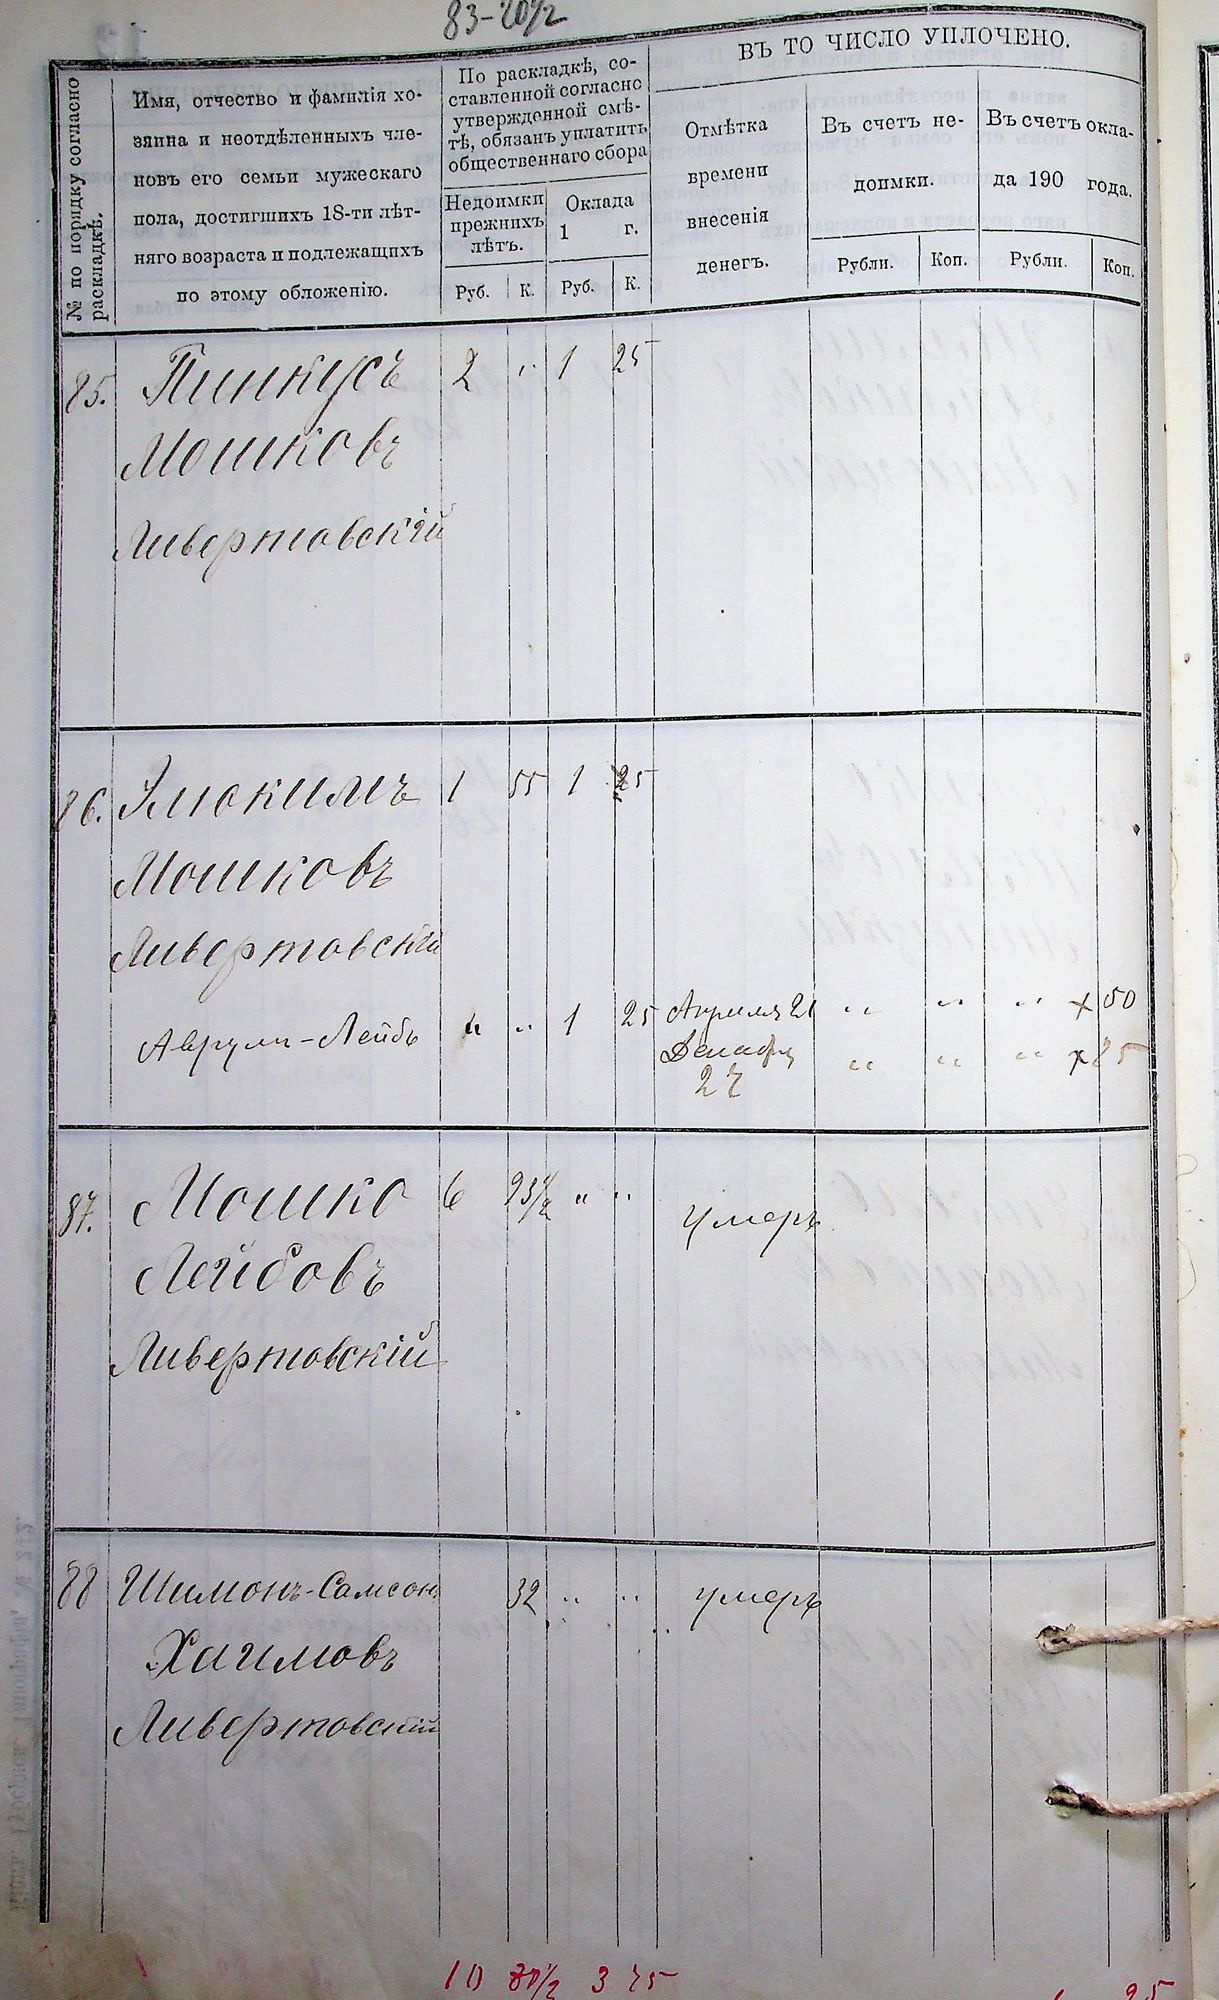 83-20½
№ по порядку согласно
раскладкѣ.
Имя, отчество и фамилія хо-
зяина и неотдѣленныхъ чле-
новъ его семьи мужескаго
пола, достигшихъ 18-ти лѣт-
няго возраста и подлежащихъ
по этому обложенію.
По раскладкѣ, со-
ставленной согласно
утвержденной смѣ-
тѣ, обязанъ уплатить
общественнаго сбора
Недоимки
прежнихъ
лѣтъ.
Оклада
1 г.
Руб. К. Руб. К.
ВЪ ТО ЧИСЛО УПЛОЧЕНО.
Отмѣтка
времени
внесенія
денегъ.
Въ счетъ не-
доимки.
Въ счетъ окла-
да 190 года.
Рубли. Коп. Рубли. Коп.
85. Пинкусъ 2 " 1 25
Мошковъ
Ливертовскій
86. Элюкимъ 1 55 1 25
Мошковъ
Ливертовскій
Аврумъ-Лейбъ " " 1 25 Апрѣля 21 " " " х 50
Декабря " " " х 85
27
87. Мошко 6 93½ " " умеръ
Лейбовъ
Ливертовскій
88 Шимонъ-Самсонъ 32 " " умеръ
Хаимовъ
Ливертовскій
10 80½ 3 75